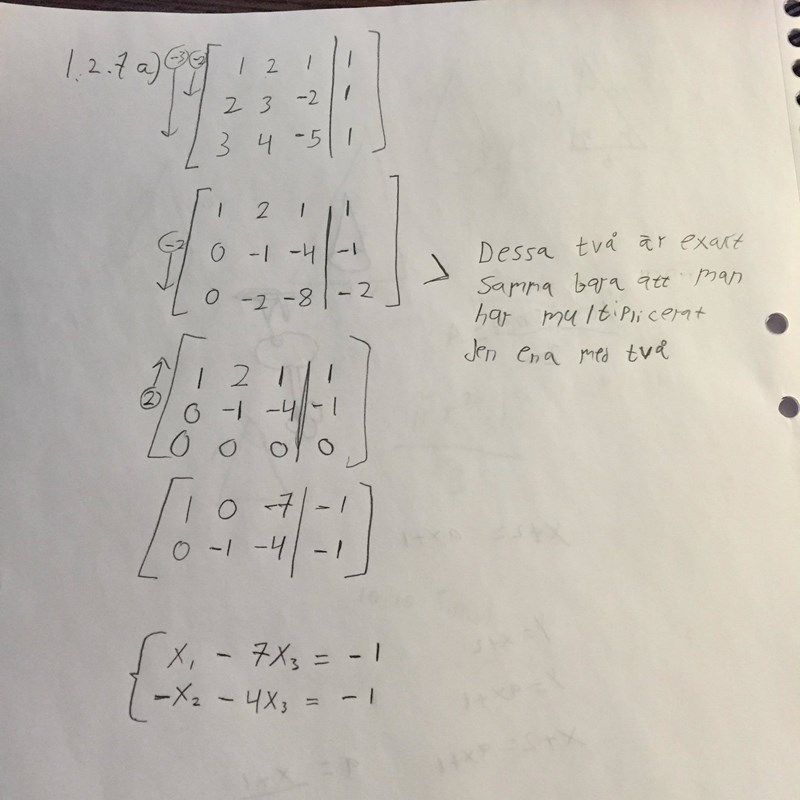 1.2.7 a) (-3) (-2) [ 1 2 1 | 1
2 3 -2 | 1
3 4 -5 | 1 ]
[ 1 2 1 | 1
(-2) 0 -1 -4 | -1
0 -2 -8 | -2 ]
> Dessa två är exakt
samma bara att man
har multiplicerat
den ena med två
(2) [ 1 2 1 | 1
0 -1 -4 | -1
0 0 0 | 0 ]
[ 1 0 -7 | -1
0 -1 -4 | -1 ]
{ x₁ - 7x₃ = -1
-x₂ - 4x₃ = -1